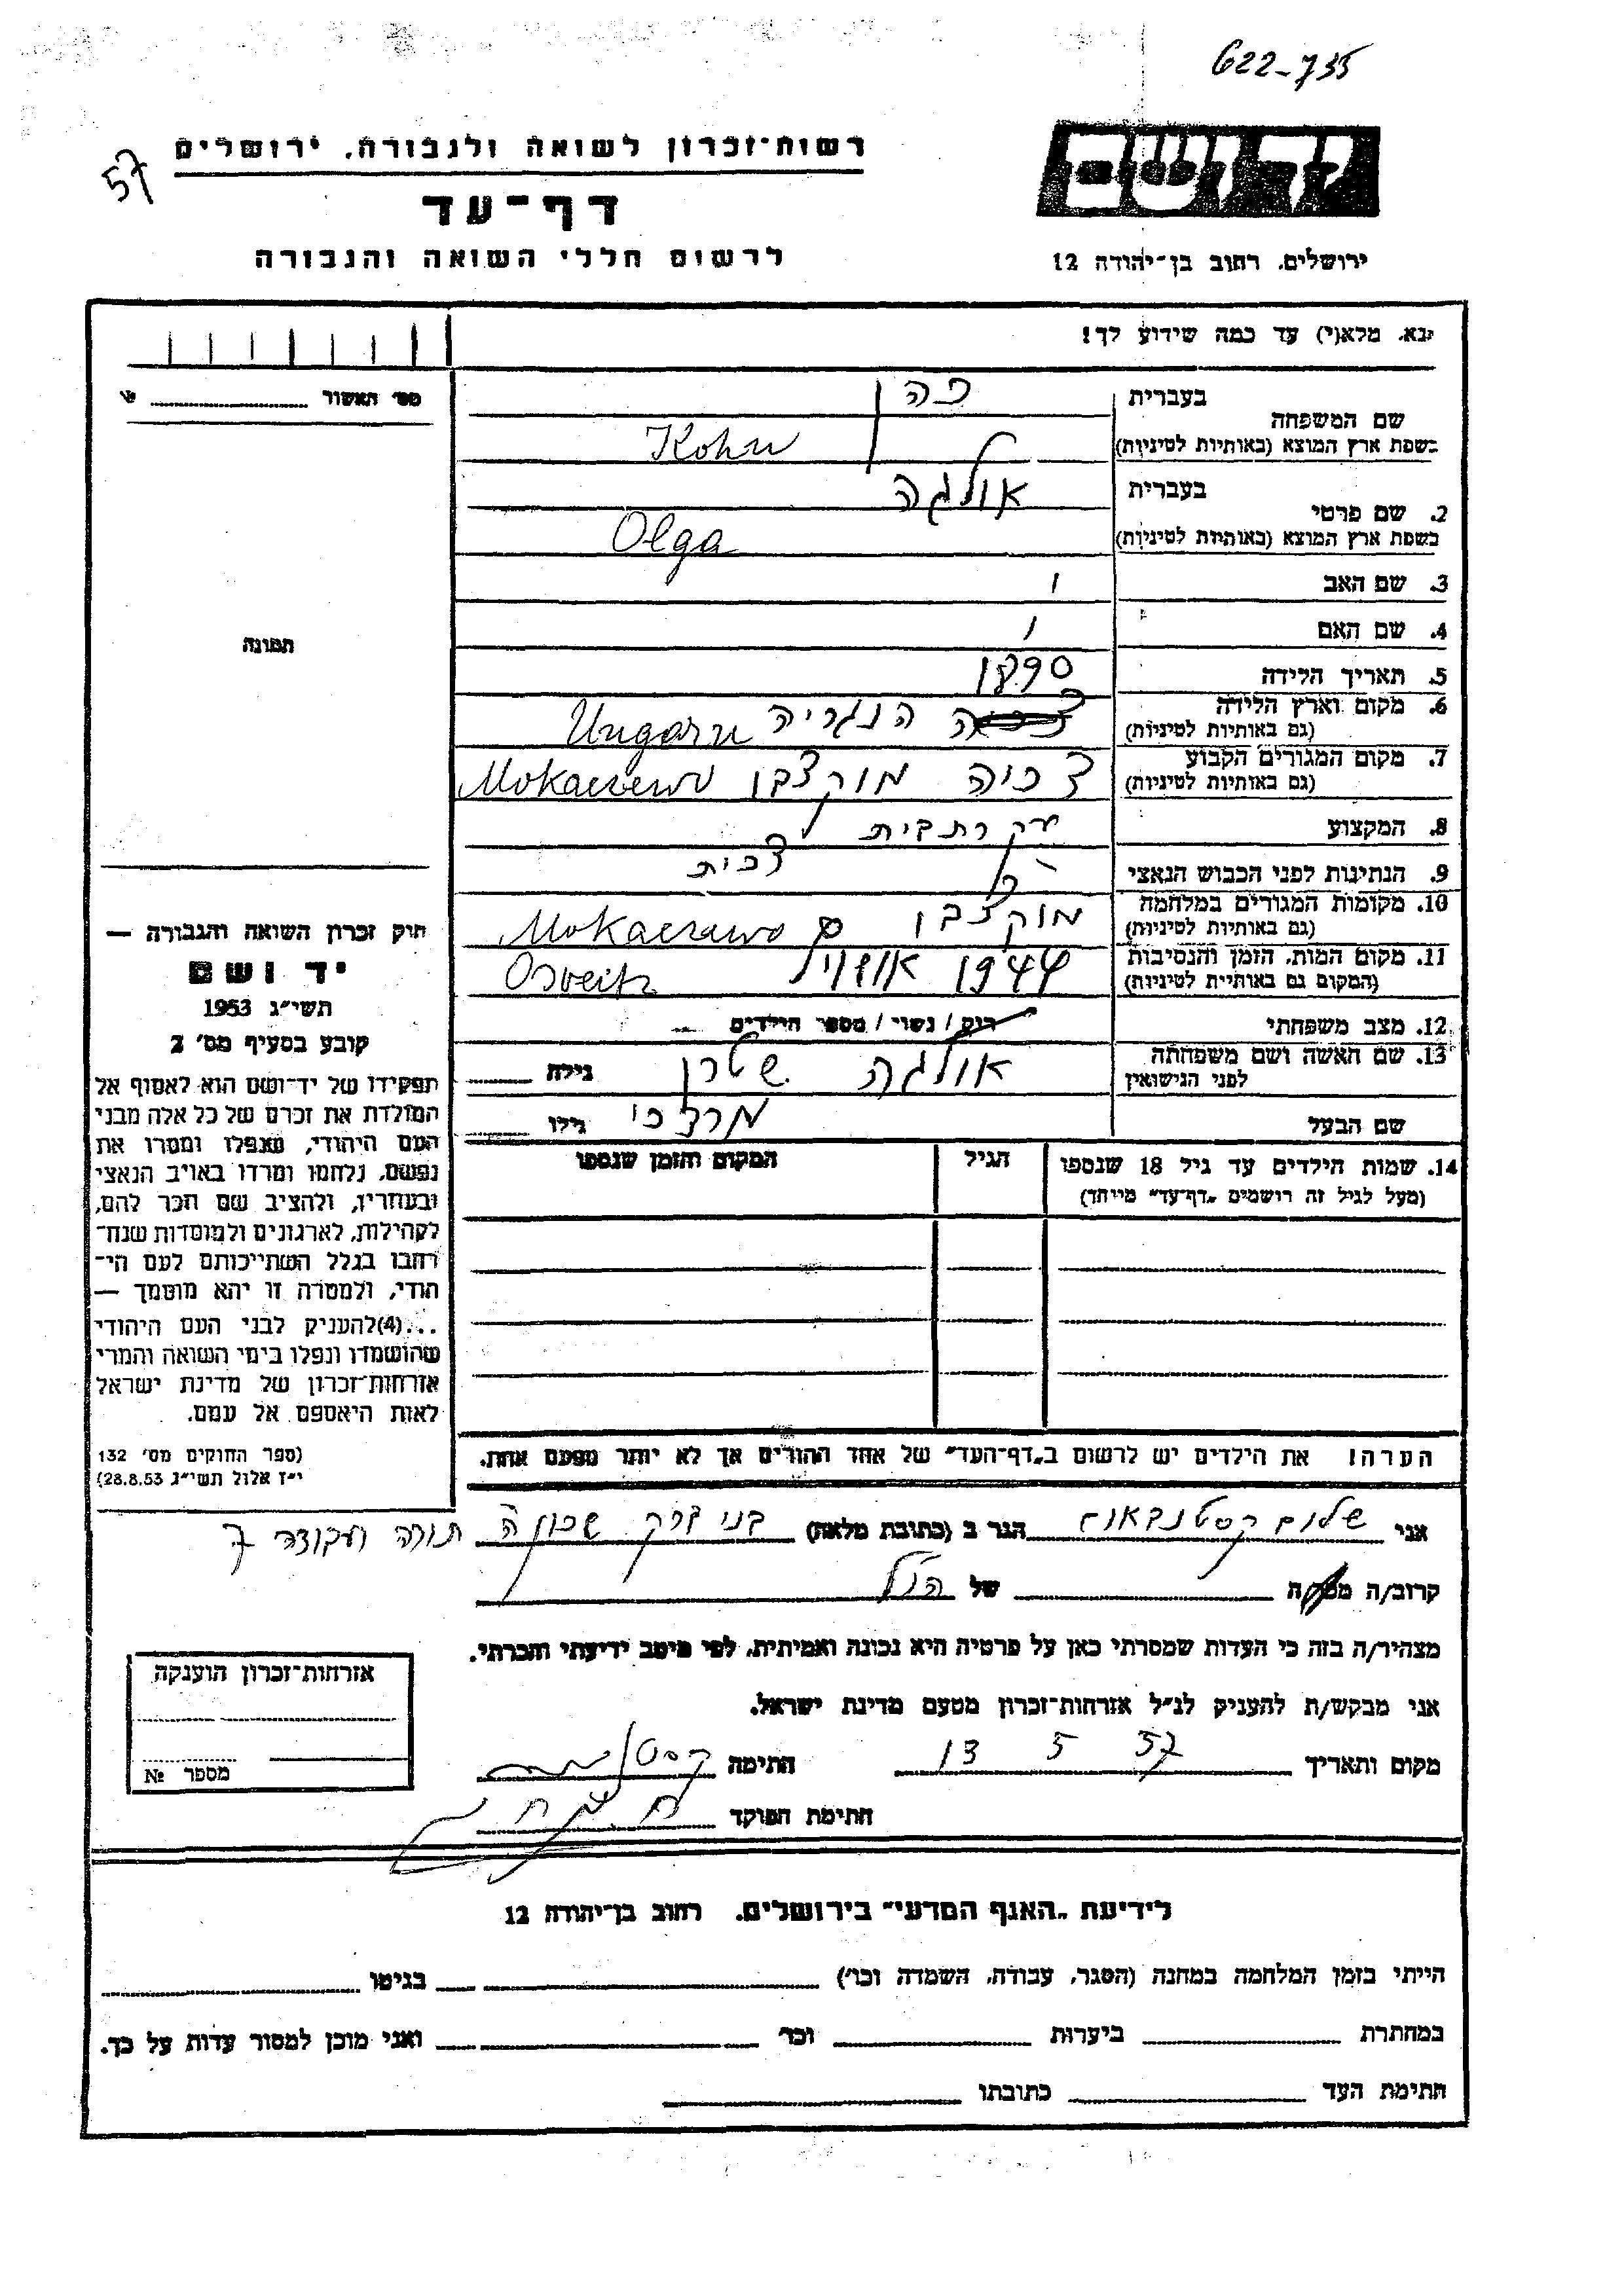 622-735
57
רשות־זכרון לשואה ולגבורה, ירושלים
יד ושם
דף־עד
לרשום חללי השואה והגבורה
ירושלים, רחוב בן־יהודה 12
נא, מלא(י) עד כמה שידוע לך!
מס' האשור
בעברית
כהן
שם המשפחה
בשפת ארץ המוצא (באותיות לטיניות)
Kohn
בעברית
אולגה
2. שם פרטי
בשפת ארץ המוצא (באותיות לטיניות)
Olga
3. שם האב
4. שם האם
5. תאריך הלידה
1890
6. מקום וארץ הלידה
(גם באותיות לטיניות)
הנגריה Ungarn
7. מקום המגורים הקבוע
(גם באותיות לטיניות)
צ'כיה מוקצבו Mokaczewo
8. המקצוע
עקרת בית
9. הנתינות לפני הכבוש הנאצי
צ'כית
10. מקומות המגורים במלחמה
(גם באותיות לטיניות)
מוקצבו Mokaczewo
11. מקום המות, הזמן והנסיבות
(המקום גם באותיית לטיניות)
1944 Osveitz
12. מצב משפחתי
רוק / נשוי / מספר הילדים
13. שם האשה ושם משפחתה
לפני הנישואין
אולגה שטרן
גילה
שם הבעל
מרדכי
גילו
14. שמות הילדים עד גיל 18 שנספו
(מעל לגיל זה רושמים „דף־עד" מייחד)
הגיל
המקום והזמן שנספו
הערה! את הילדים יש לרשום ב„דף־העד" של אחד ההורים אך לא יותר מפעם אחת.
תמונה
חוק זכרון השואה והגבורה —
יד ושם
תשי"ג 1953
קובע בסעיף מס' 2
תפקידו של יד־ושם הוא לאסוף אל
המולדת את זכרם של כל אלה מבני
העם היהודי, שנפלו ומסרו את
נפשם, נלחמו ומרדו באויב הנאצי
ובעוזריו, ולהציב שם וזכר להם,
לקהילות, לארגונים ולמוסדות שנח־
רבו בגלל השתייכותם לעם הי־
הודי, ולמטרה זו יהא מוסמך —
...(4)להעניק לבני העם היהודי
שהושמדו ונפלו בימי השואה והמרי
אזרחות־זכרון של מדינת ישראל
לאות היאספם אל עמם.
(ספר החוקים מס' 132
י"ז אלול תשי"ג 28.8.53)
אני שלום קסטנבאום הגר ב (כתובת מלאה) בני ברק שכון ה תורה ועבודה 7
קרוב/ה של הנ"ל
מצהיר/ה בזה כי העדות שמסרתי כאן על פרטיה היא נכונה ואמיתית, לפי מיטב ידיעתי והכרתי.
אני מבקש/ת להעניק לנ"ל אזרחות־זכרון מטעם מדינת ישראל.
מקום ותאריך 13 5 57 חתימה
חתימת הפוקד
אזרחות־זכרון הוענקה
מספר №
לידיעת „האגף המדעי" בירושלים, רחוב בן־יהודה 12
הייתי בזמן המלחמה במחנה (הסגר, עבודה, השמדה וכו') בגיטו
במחתרת ביערות וכו' ואני מוכן למסור עדות על כך.
חתימת העד כתובתו